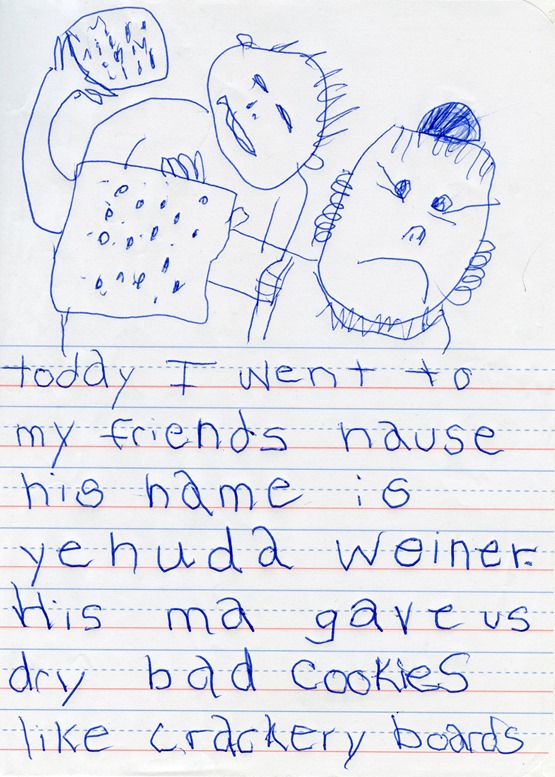 today I went to
my friends hause
his name is
yehuda weiner.
His ma gave us
dry bad cookies
like crackery boards